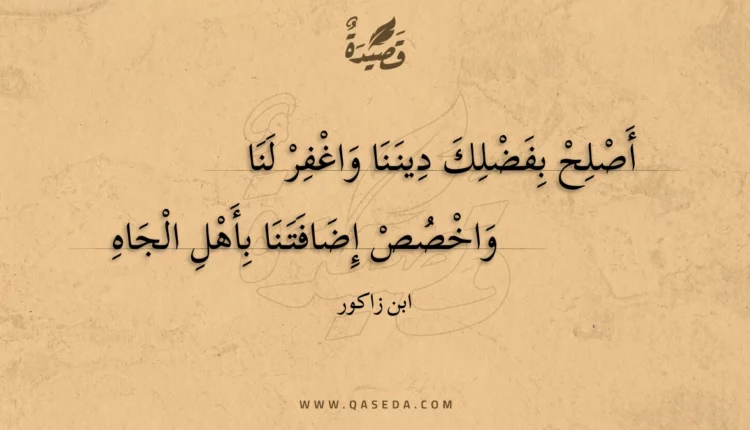 قَصِيدَةٌ
أَصْلِحْ بِفَضْلِكَ دِينَنَا وَاغْفِرْ لَنَا
وَاخْصُصْ إِضَافَتَنَا بِأَهْلِ الْجَاهِ
ابن زاكور
WWW.QASEDA.COM